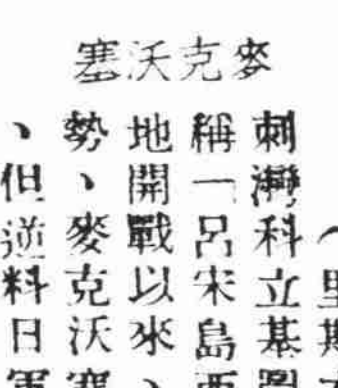 麥克沃塞
（里斯
刺灣科立基
稱一呂宋島西
地開戰以來、
勢、麥克沃塞
、但逆料日軍